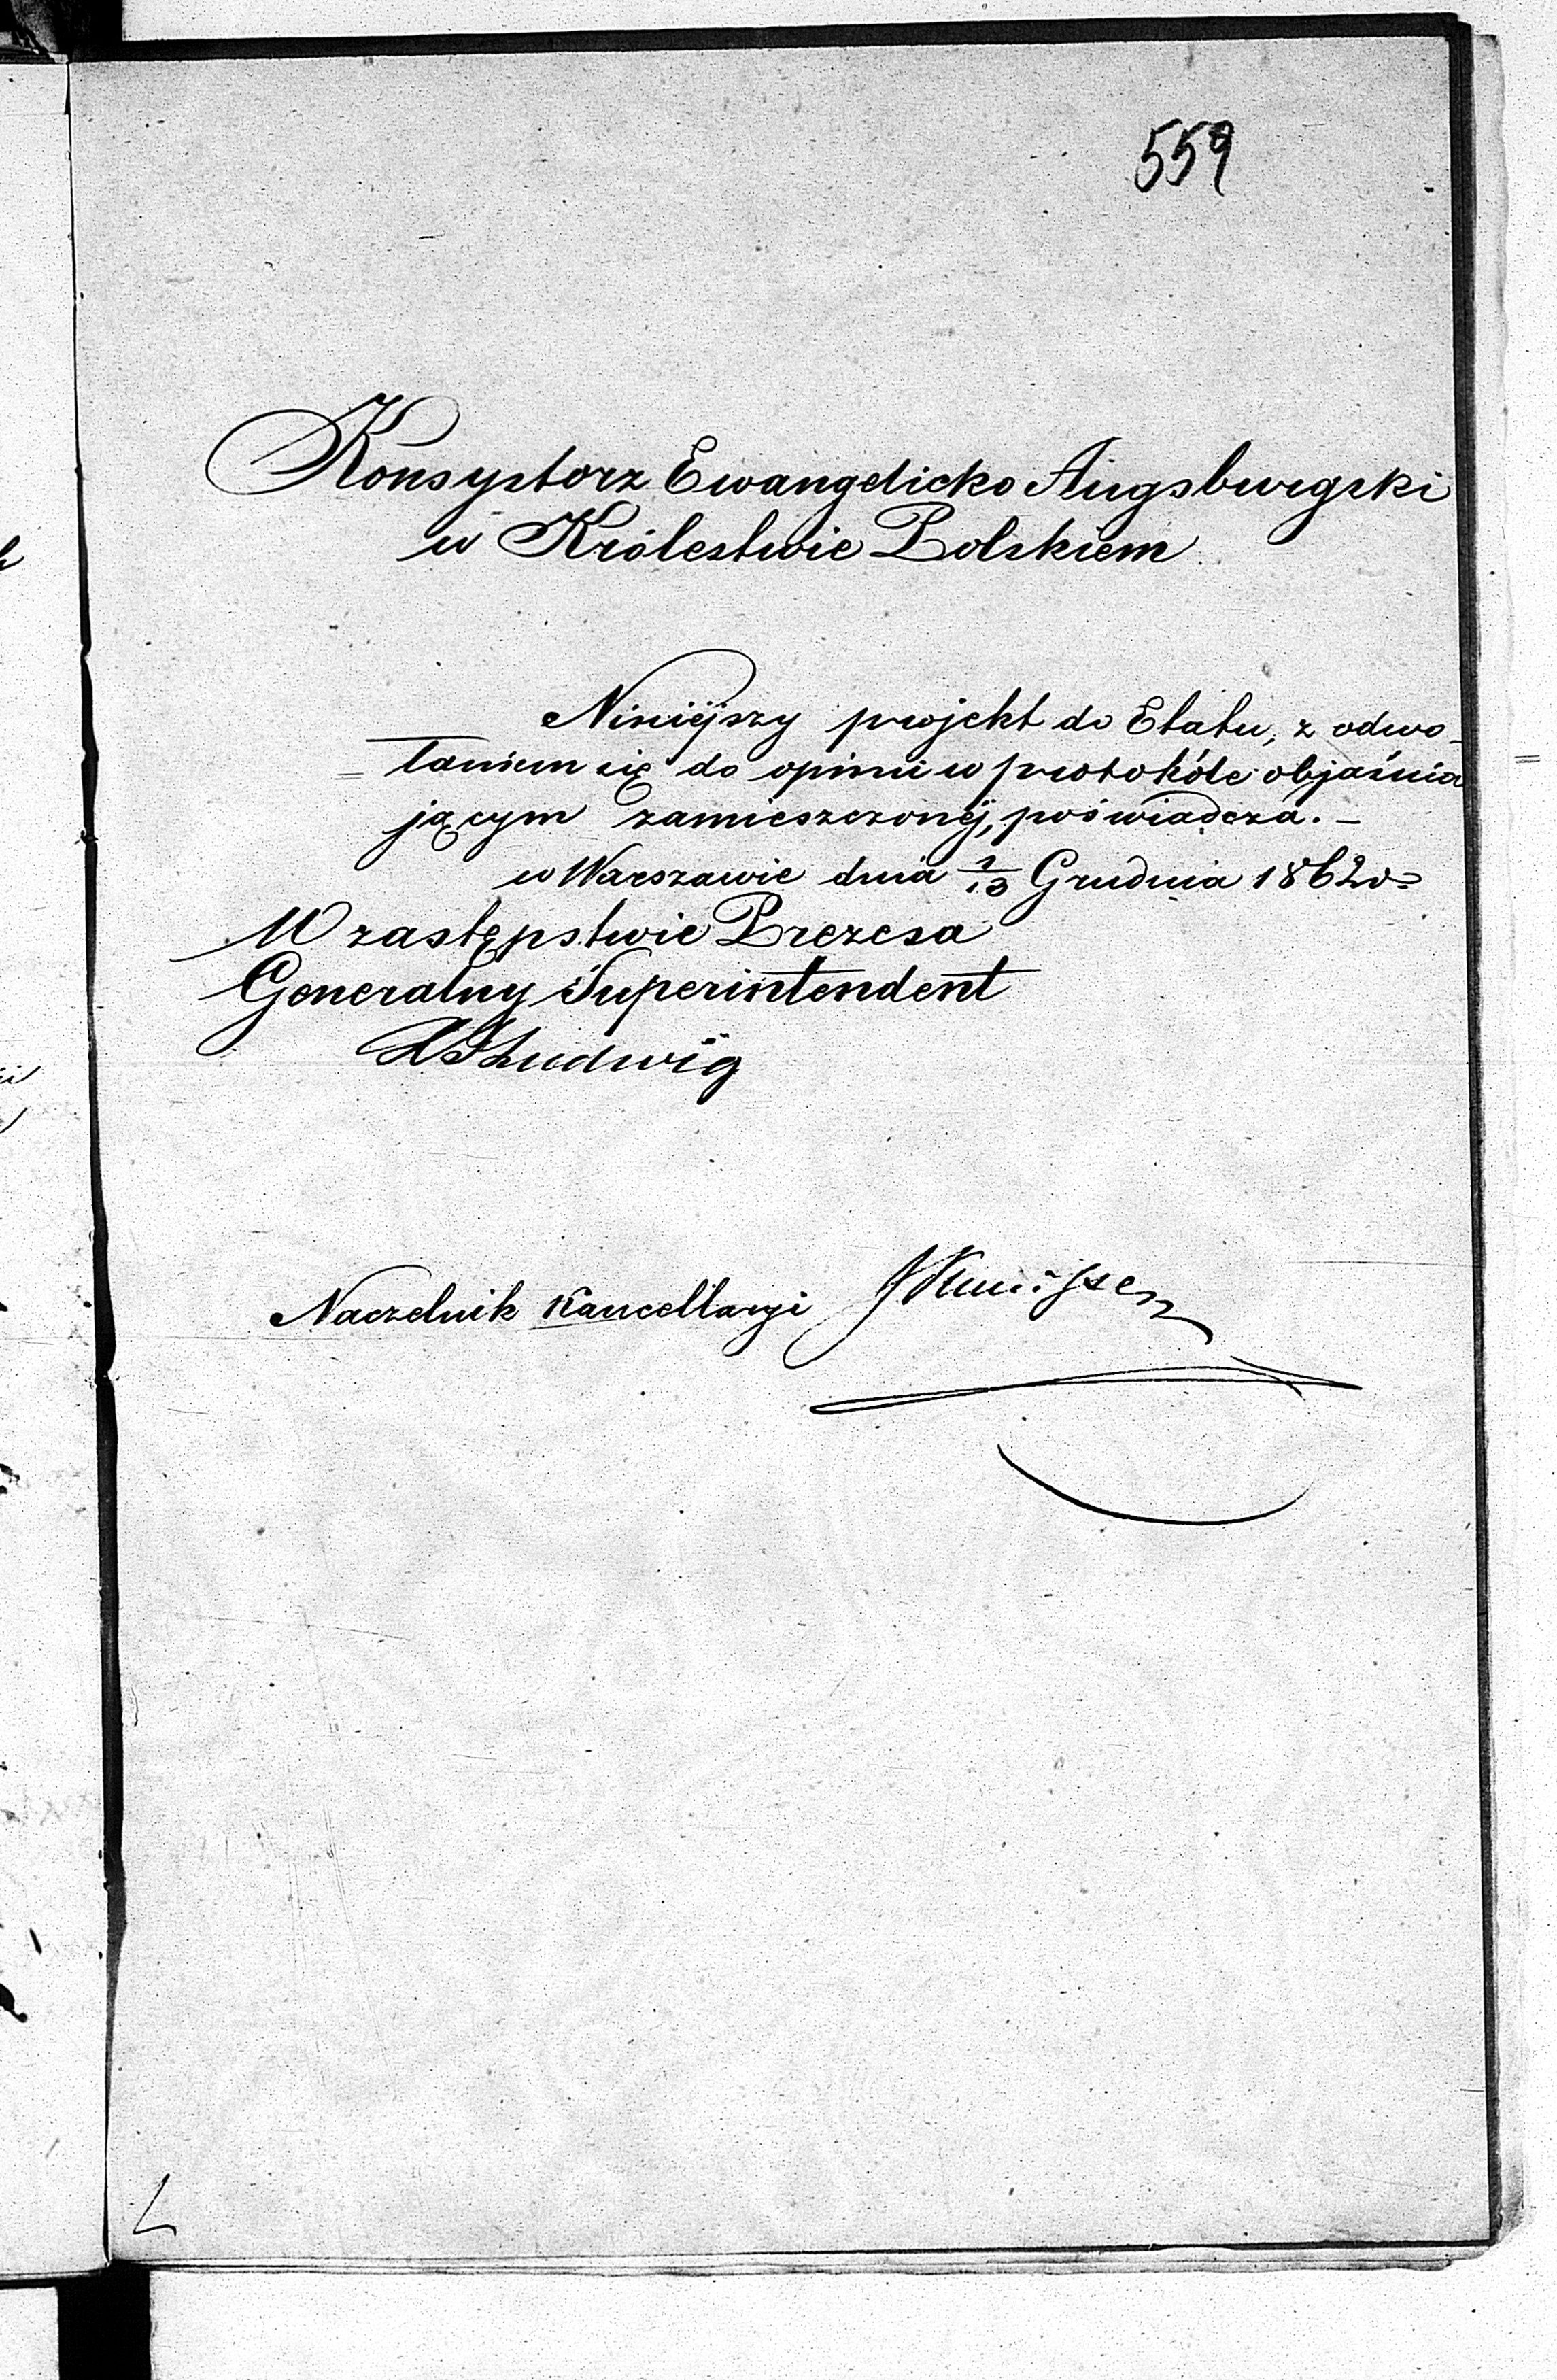 559
Konsystorz Ewangelicko Augsburgski
w Królestwie Polskiem
Niniéjszy projekt do Etatu, z odwo-
łaniem się do opinii w protokóle objaśnia
jącym zamieszczonéj, poświadcza. –
w Warszawie dnia 1/13 Grudnia 1862 r=
W zastępstwie Prezesa
Generalny Superintendent
Ludwig
Naczelnik Kancellaryi